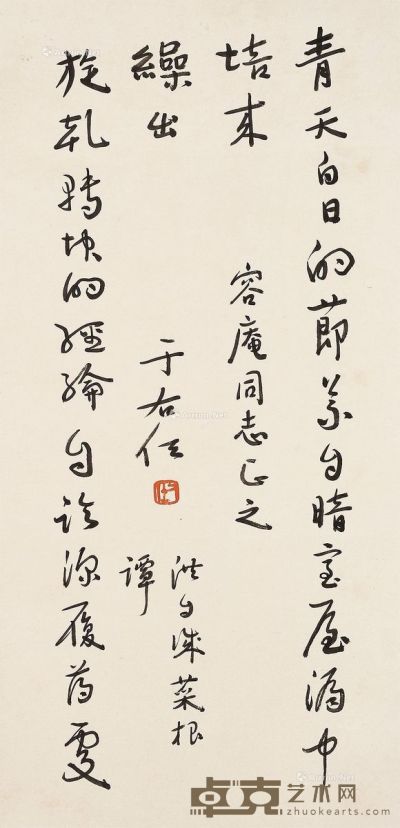 青天白日的節義自暗室屋漏中
培來
容庵同志正之
旋乾轉坤的經綸自臨深履薄處
繰出
洪自誠菜根
譚
于右任
卓克艺术网
zhuokearts.com